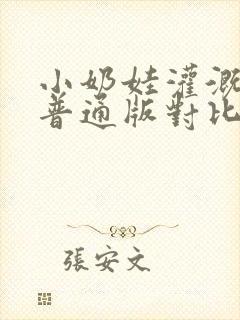 小奶娃灌溉
普通版對比
張安文